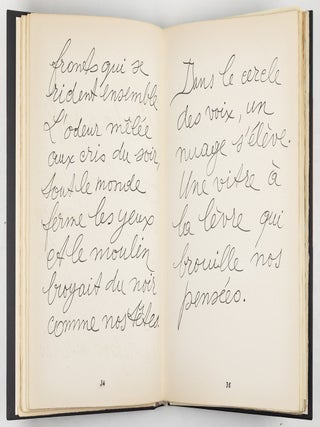 fronts qui se
rident ensemble
L'odeur mêlée
aux cris du soir,
tout le monde
ferme les yeux
et le moulin
broyait du noir
comme nos têtes.
34
Dans le cercle
des voix, un
nuage s'élève.
Une vitre à
la lèvre qui
brouille nos
pensées.